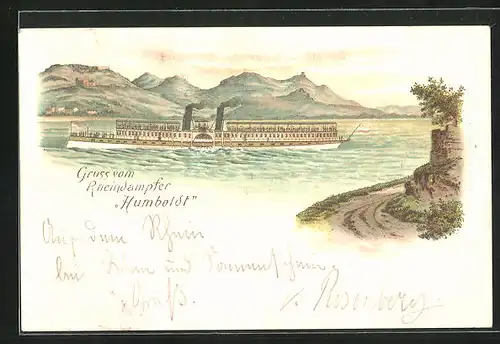 Gruss vom
Rheindampfer
„Humboldt"
Auf dem Rhein
bei und Sonnenschein
Gruß.
Rosenberg